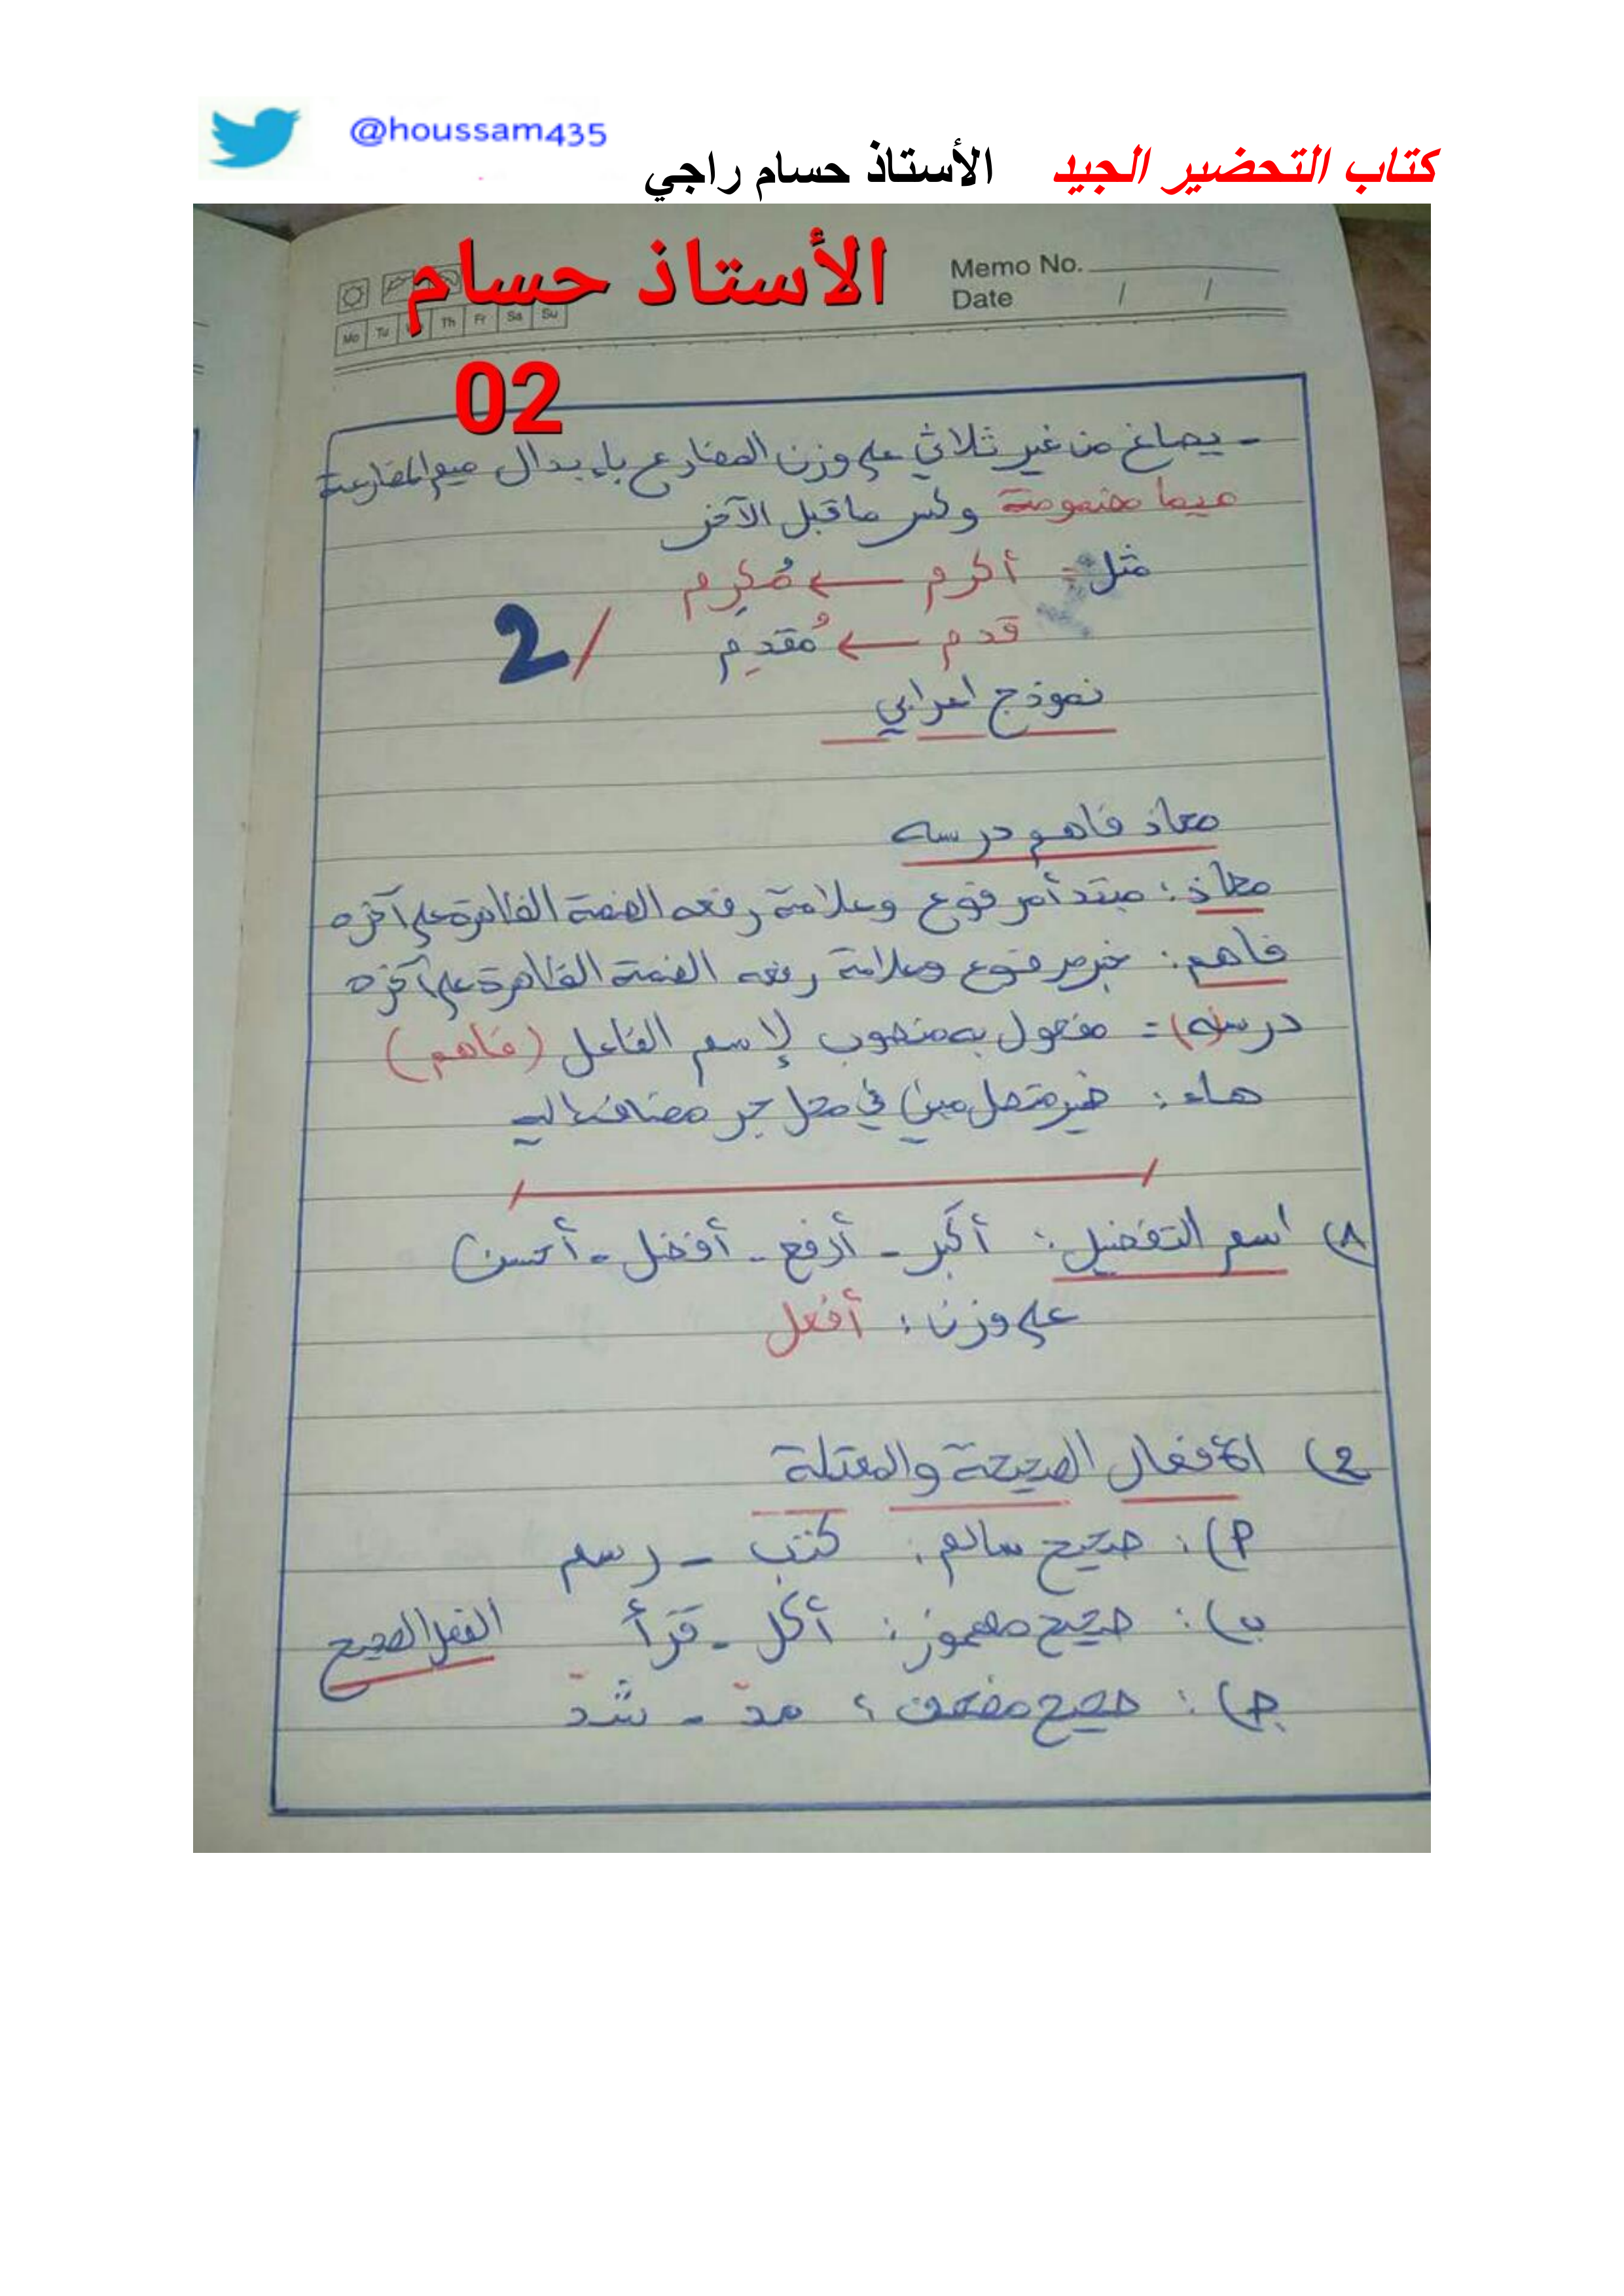 @houssam435
كتاب التحضير الجيد الأستاذ حسام راجي
الأستاذ حسام
Memo No.
Date / /
Mo Tu Th Fr Sa Su
02
- يصاغ من غير ثلاثي على وزن المضارع بإبدال ميم المضارعة
ميما مضمومة وكسر ما قبل الآخر
مثل: أكرم ← مُكرِم
قدم ← مُقدِم
2/
نموذج اعرابي
معاذ فاهم درسه
معاذ: مبتدأ مرفوع وعلامة رفعه الضمة الظاهرة على آخره
فاهم: خبر مرفوع وعلامة رفعه الضمة الظاهرة على آخره
درسه) = مفعول به منصوب لإسم الفاعل (فاهم)
هاء: ضمير متصل مبني في محل جر مضاف إليه
1) اسم التفضيل: أكبر - أرفع - أفضل - أحسن
على وزن: أفعل
2) الأفعال الصحيحة والمعتلة
أ): صحيح سالم: كتب - رسم
ب): صحيح مهموز: أكل - قرأ الفعل الصحيح
ج): صحيح مضعف: مدّ - شدّ